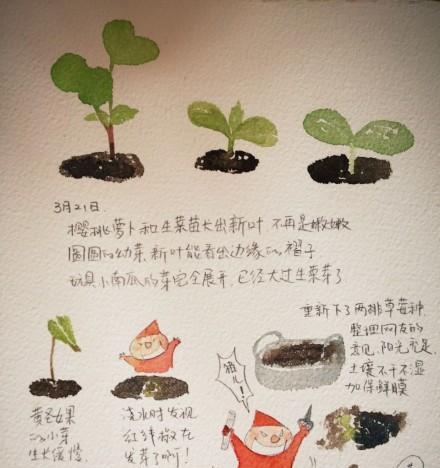 3月21日.
樱桃萝卜和生菜苗长出新叶,不再是嫩嫩
圆圆的幼芽,新叶能看出边缘的褶子
玩具小南瓜的芽完全展开,已经大过生菜芽了
重新下了两排草莓种.
整理网友的
意见,阳光充足,
土壤不干不湿
加保鲜膜
黄圣女果
的小芽
生长缓慢.
浇水时发现
红辣椒在
发芽了啊!